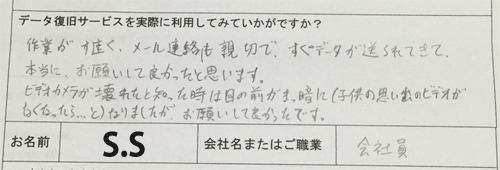 データ復旧サービスを実際に利用してみていかがですか？
作業が速く、メール連絡も親切で、すぐデータが送られてきて、
本当に、お願いして良かったと思います。
ビデオカメラが壊れたと知った時は目の前がま、暗に（子供の思い出のビデオが
なくなったら…と）なりましたが、お願いして良かったです。
お名前 S.S 会社名またはご職業 会社員